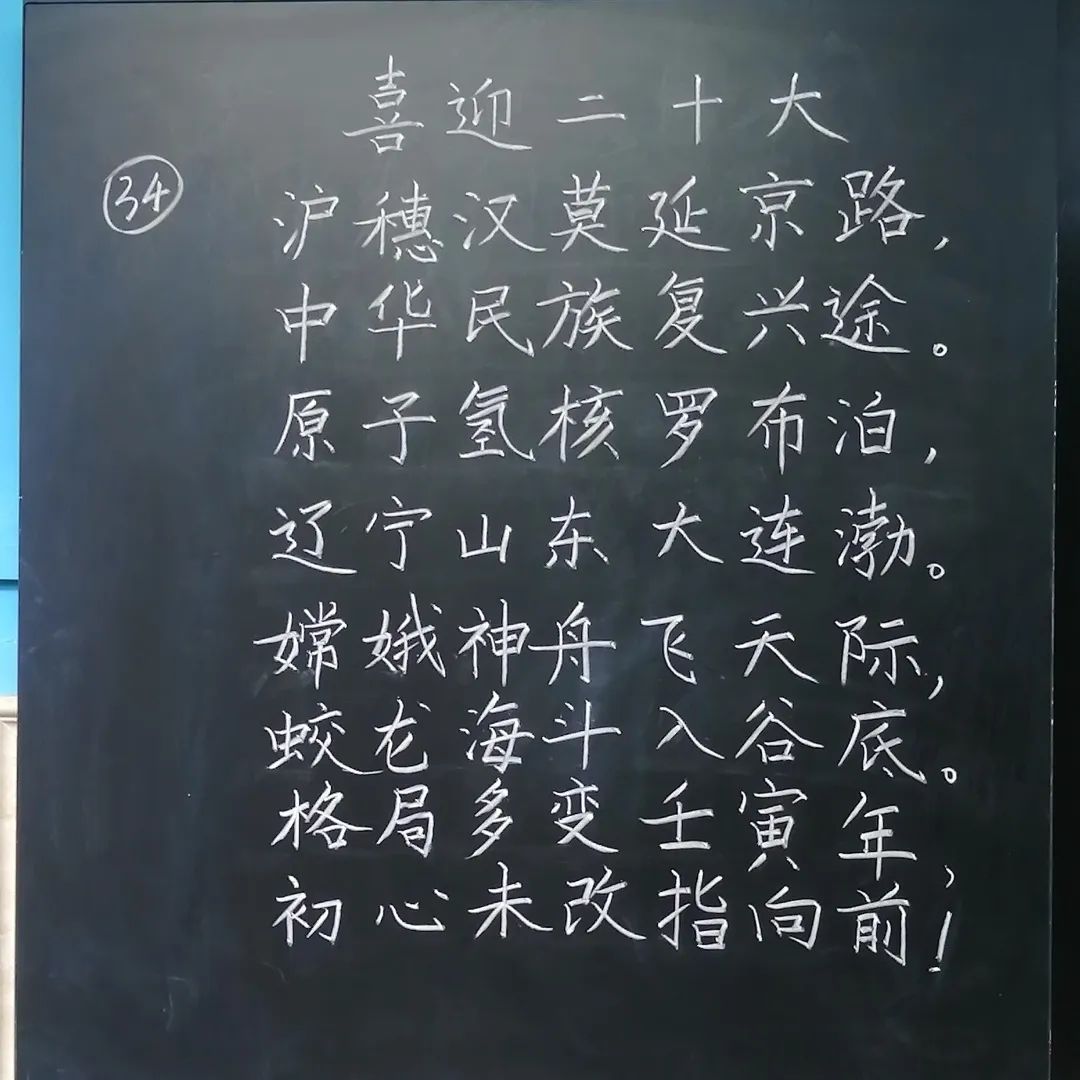 喜迎二十大
34
沪穗汉莫延京路,
中华民族复兴途。
原子氢核罗布泊,
辽宁山东大连渤。
嫦娥神舟飞天际,
蛟龙海斗入谷底。
格局多变壬寅年,
初心未改指向前!